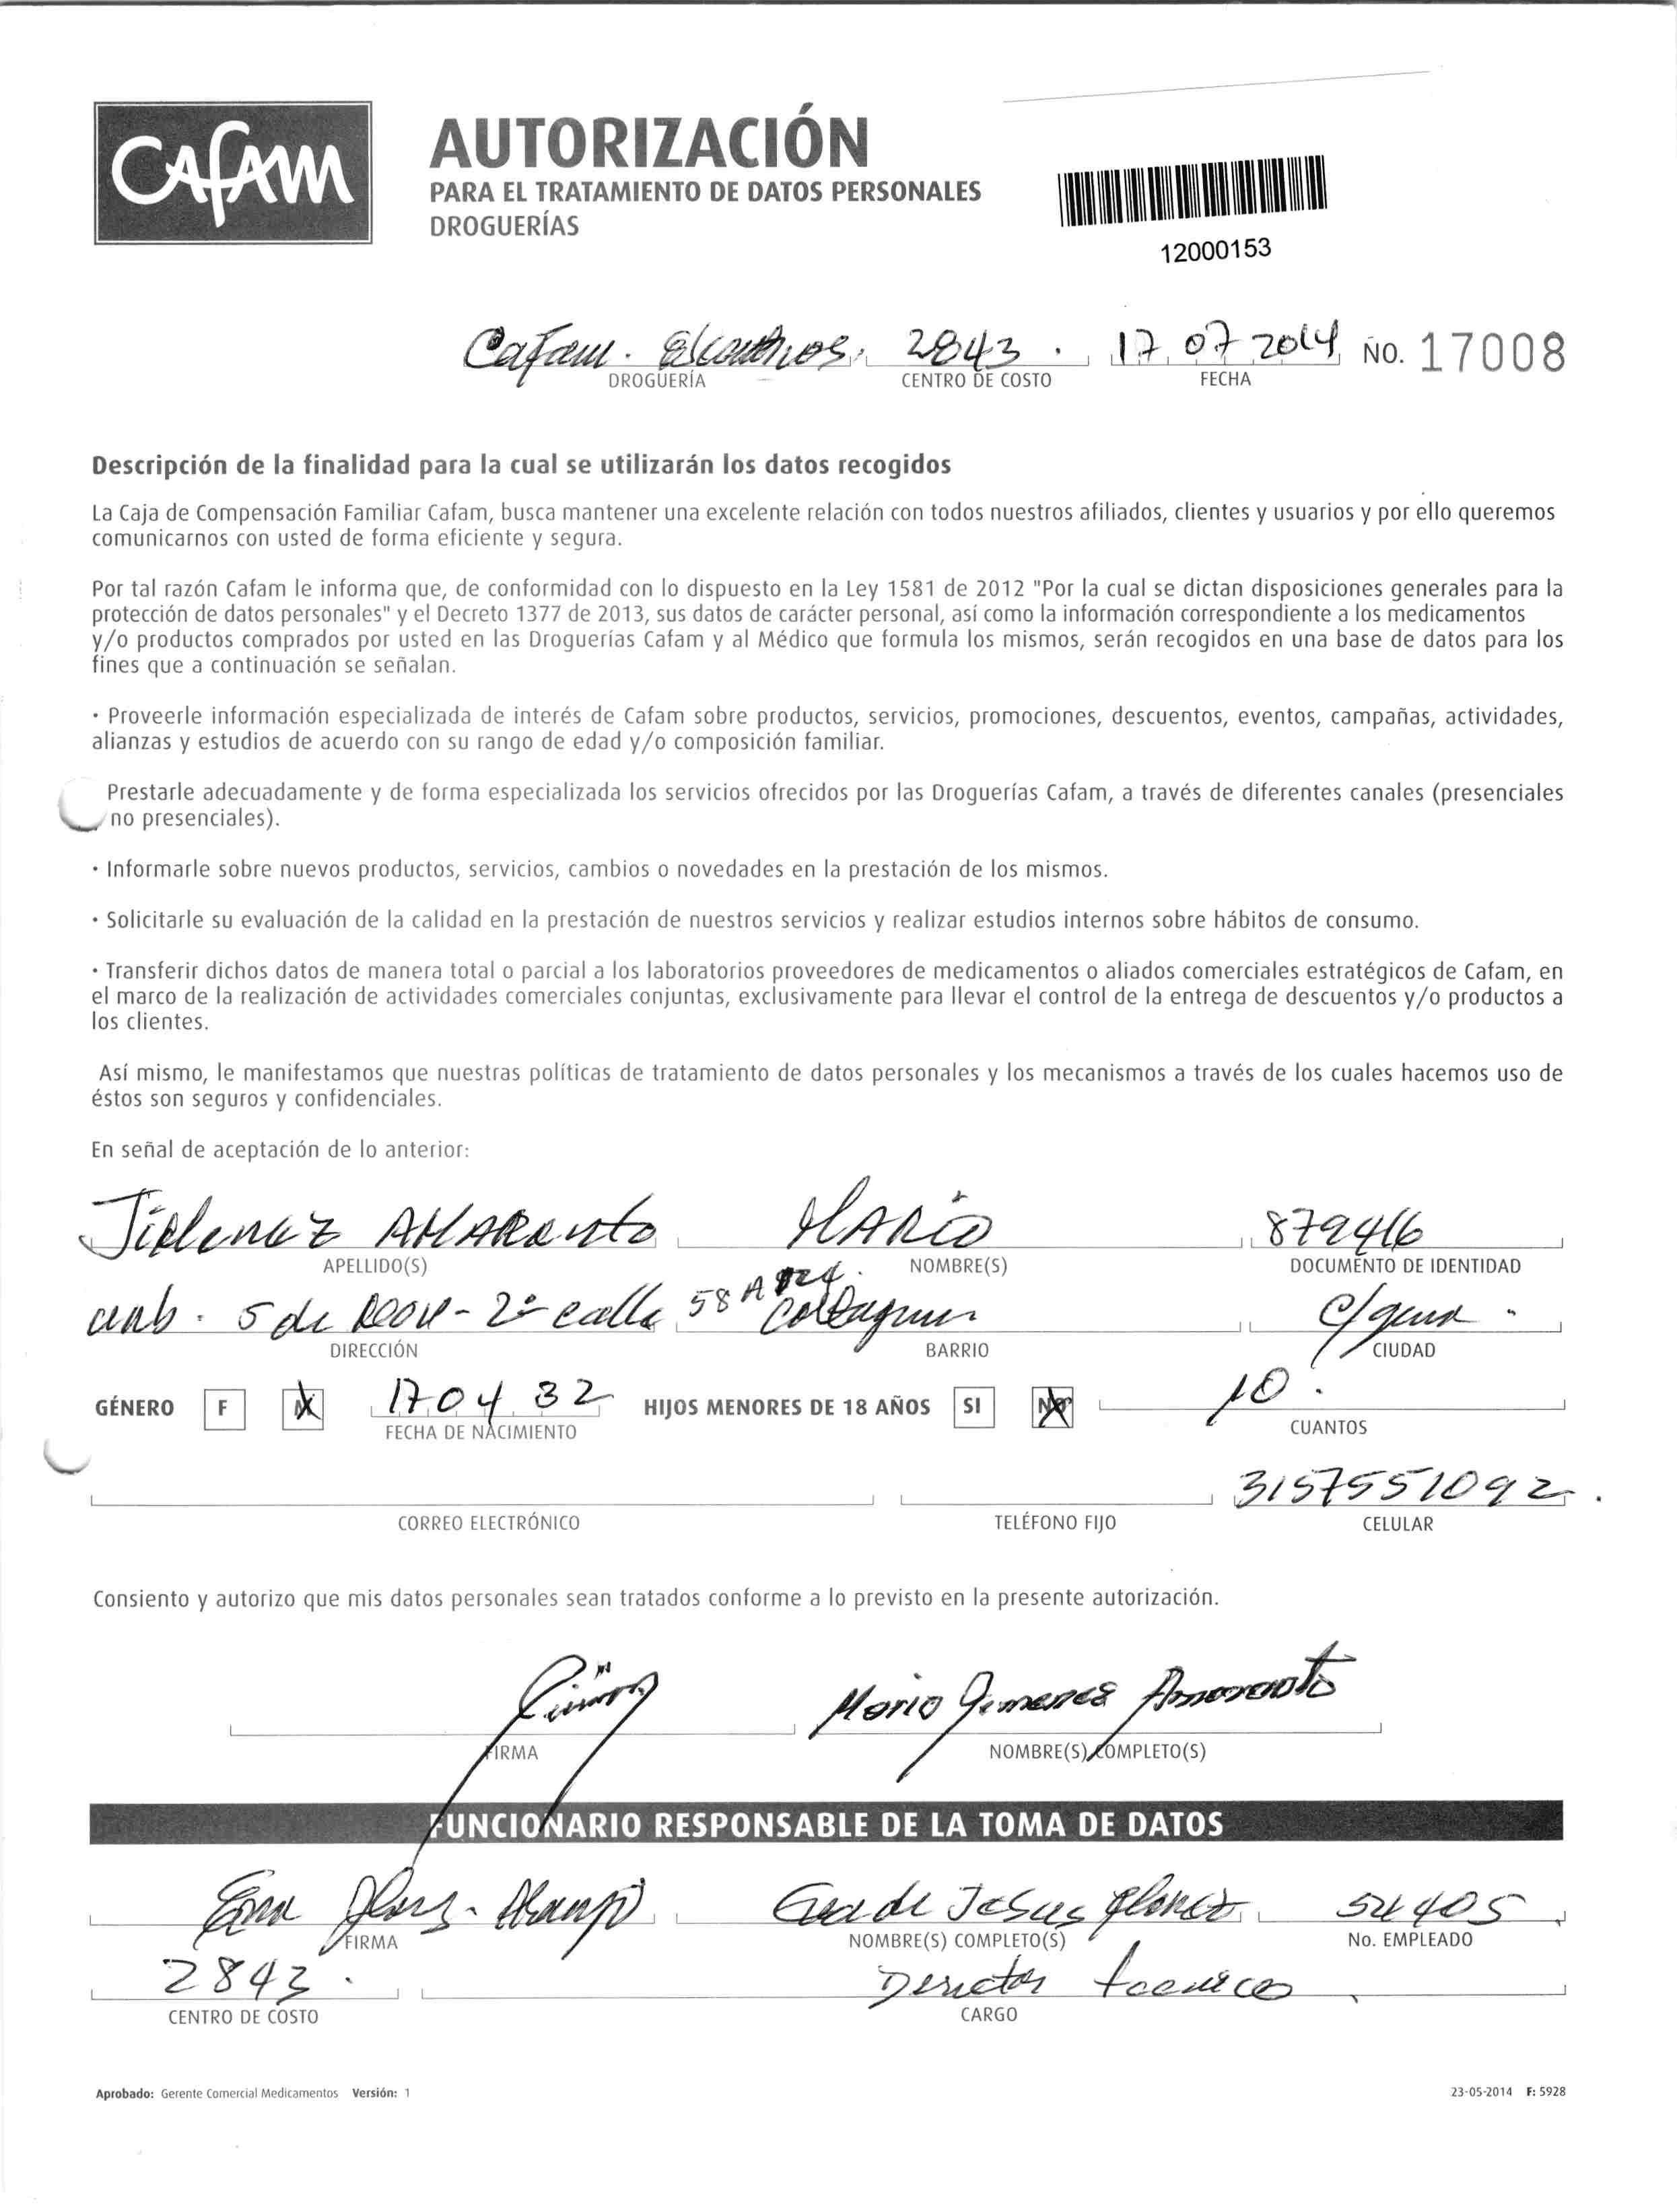 CAFAM
AUTORIZACIÓN
PARA EL TRATAMIENTO DE DATOS PERSONALES
DROGUERÍAS
12000153
Cafam. 2843. 17 07 2014 No. 17008
DROGUERÍA CENTRO DE COSTO FECHA
Descripción de la finalidad para la cual se utilizarán los datos recogidos
La Caja de Compensación Familiar Cafam, busca mantener una excelente relación con todos nuestros afiliados, clientes y usuarios y por ello queremos
comunicarnos con usted de forma eficiente y segura.
Por tal razón Cafam le informa que, de conformidad con lo dispuesto en la Ley 1581 de 2012 "Por la cual se dictan disposiciones generales para la
protección de datos personales" y el Decreto 1377 de 2013, sus datos de carácter personal, así como la información correspondiente a los medicamentos
y/o productos comprados por usted en las Droguerías Cafam y al Médico que formula los mismos, serán recogidos en una base de datos para los
fines que a continuación se señalan.
· Proveerle información especializada de interés de Cafam sobre productos, servicios, promociones, descuentos, eventos, campañas, actividades,
alianzas y estudios de acuerdo con su rango de edad y/o composición familiar.
Prestarle adecuadamente y de forma especializada los servicios ofrecidos por las Droguerías Cafam, a través de diferentes canales (presenciales
no presenciales).
· Informarle sobre nuevos productos, servicios, cambios o novedades en la prestación de los mismos.
· Solicitarle su evaluación de la calidad en la prestación de nuestros servicios y realizar estudios internos sobre hábitos de consumo.
· Transferir dichos datos de manera total o parcial a los laboratorios proveedores de medicamentos o aliados comerciales estratégicos de Cafam, en
el marco de la realización de actividades comerciales conjuntas, exclusivamente para llevar el control de la entrega de descuentos y/o productos a
los clientes.
Así mismo, le manifestamos que nuestras políticas de tratamiento de datos personales y los mecanismos a través de los cuales hacemos uso de
éstos son seguros y confidenciales.
En señal de aceptación de lo anterior:
Jimenez AMARANto MARIO 879416
APELLIDO(S) NOMBRE(S) DOCUMENTO DE IDENTIDAD
urb. 5 de - 2º calle 58 A C/gena
DIRECCIÓN BARRIO CIUDAD
GÉNERO F M 17 04 32 HIJOS MENORES DE 18 AÑOS SI NO 10.
FECHA DE NACIMIENTO CUANTOS
3157551092.
CORREO ELECTRÓNICO TELÉFONO FIJO CELULAR
Consiento y autorizo que mis datos personales sean tratados conforme a lo previsto en la presente autorización.
Mario Jimenes Amaranto
FIRMA NOMBRE(S) COMPLETO(S)
FUNCIONARIO RESPONSABLE DE LA TOMA DE DATOS
de Jesus 54405
FIRMA NOMBRE(S) COMPLETO(S) No. EMPLEADO
2843. Director tecnico
CENTRO DE COSTO CARGO
Aprobado: Gerente Comercial Medicamentos Versión: 1 23-05-2014 F: 5928